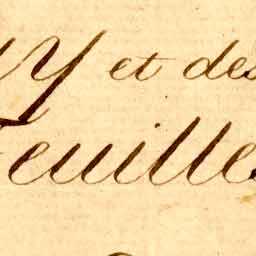 y et des
Feuilles